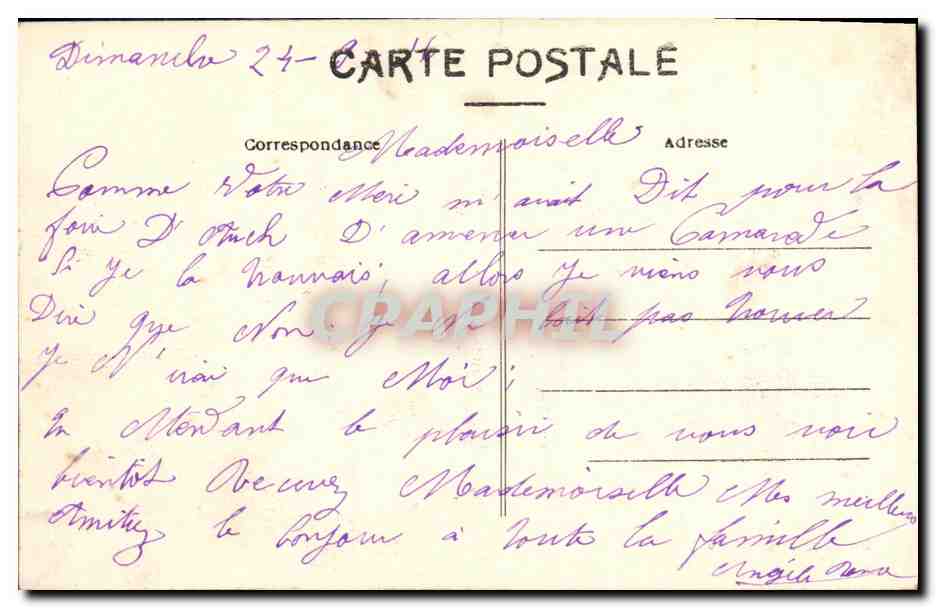 Dimanche 24-
CARTE POSTALE
Correspondance Mademoiselle Adresse
Comme Votre Meri m'avait Dit pour la
foire D'Auch D'amener une Camarade
Si Je la trouvais, allors Je viens vous
CRAPHIL
Dire que Non. Je Ne pas trouver
Je N'irai que Moi;
En Attendant le plaisir de vous voir
bientot Recevez Mademoiselle Mes meilleurs
Amitiez le bonjour à toute la famille
Angèle